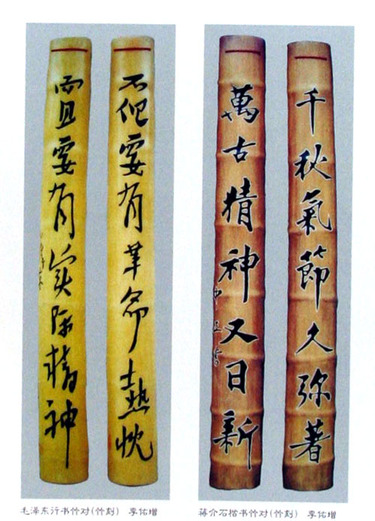 不但要有革命熱忱
而且要有实际精神
千秋氣節久弥著
萬古精神又日新
毛泽东行书竹对(竹刻) 李佑增
蒋介石楷书竹对(竹刻) 李佑增